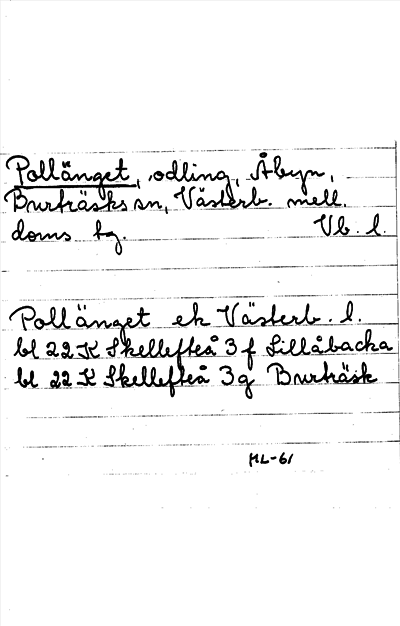 Pollänget, odling, Åbyn,
Burträsks sn, Västerb. mell.
doms tg. Vb. l.
Pollänget ek Västerb. l.
bl 22 K Skellefteå 3 f Lillåbacka
bl 22 K Skellefteå 3 g Burträsk
ML-61